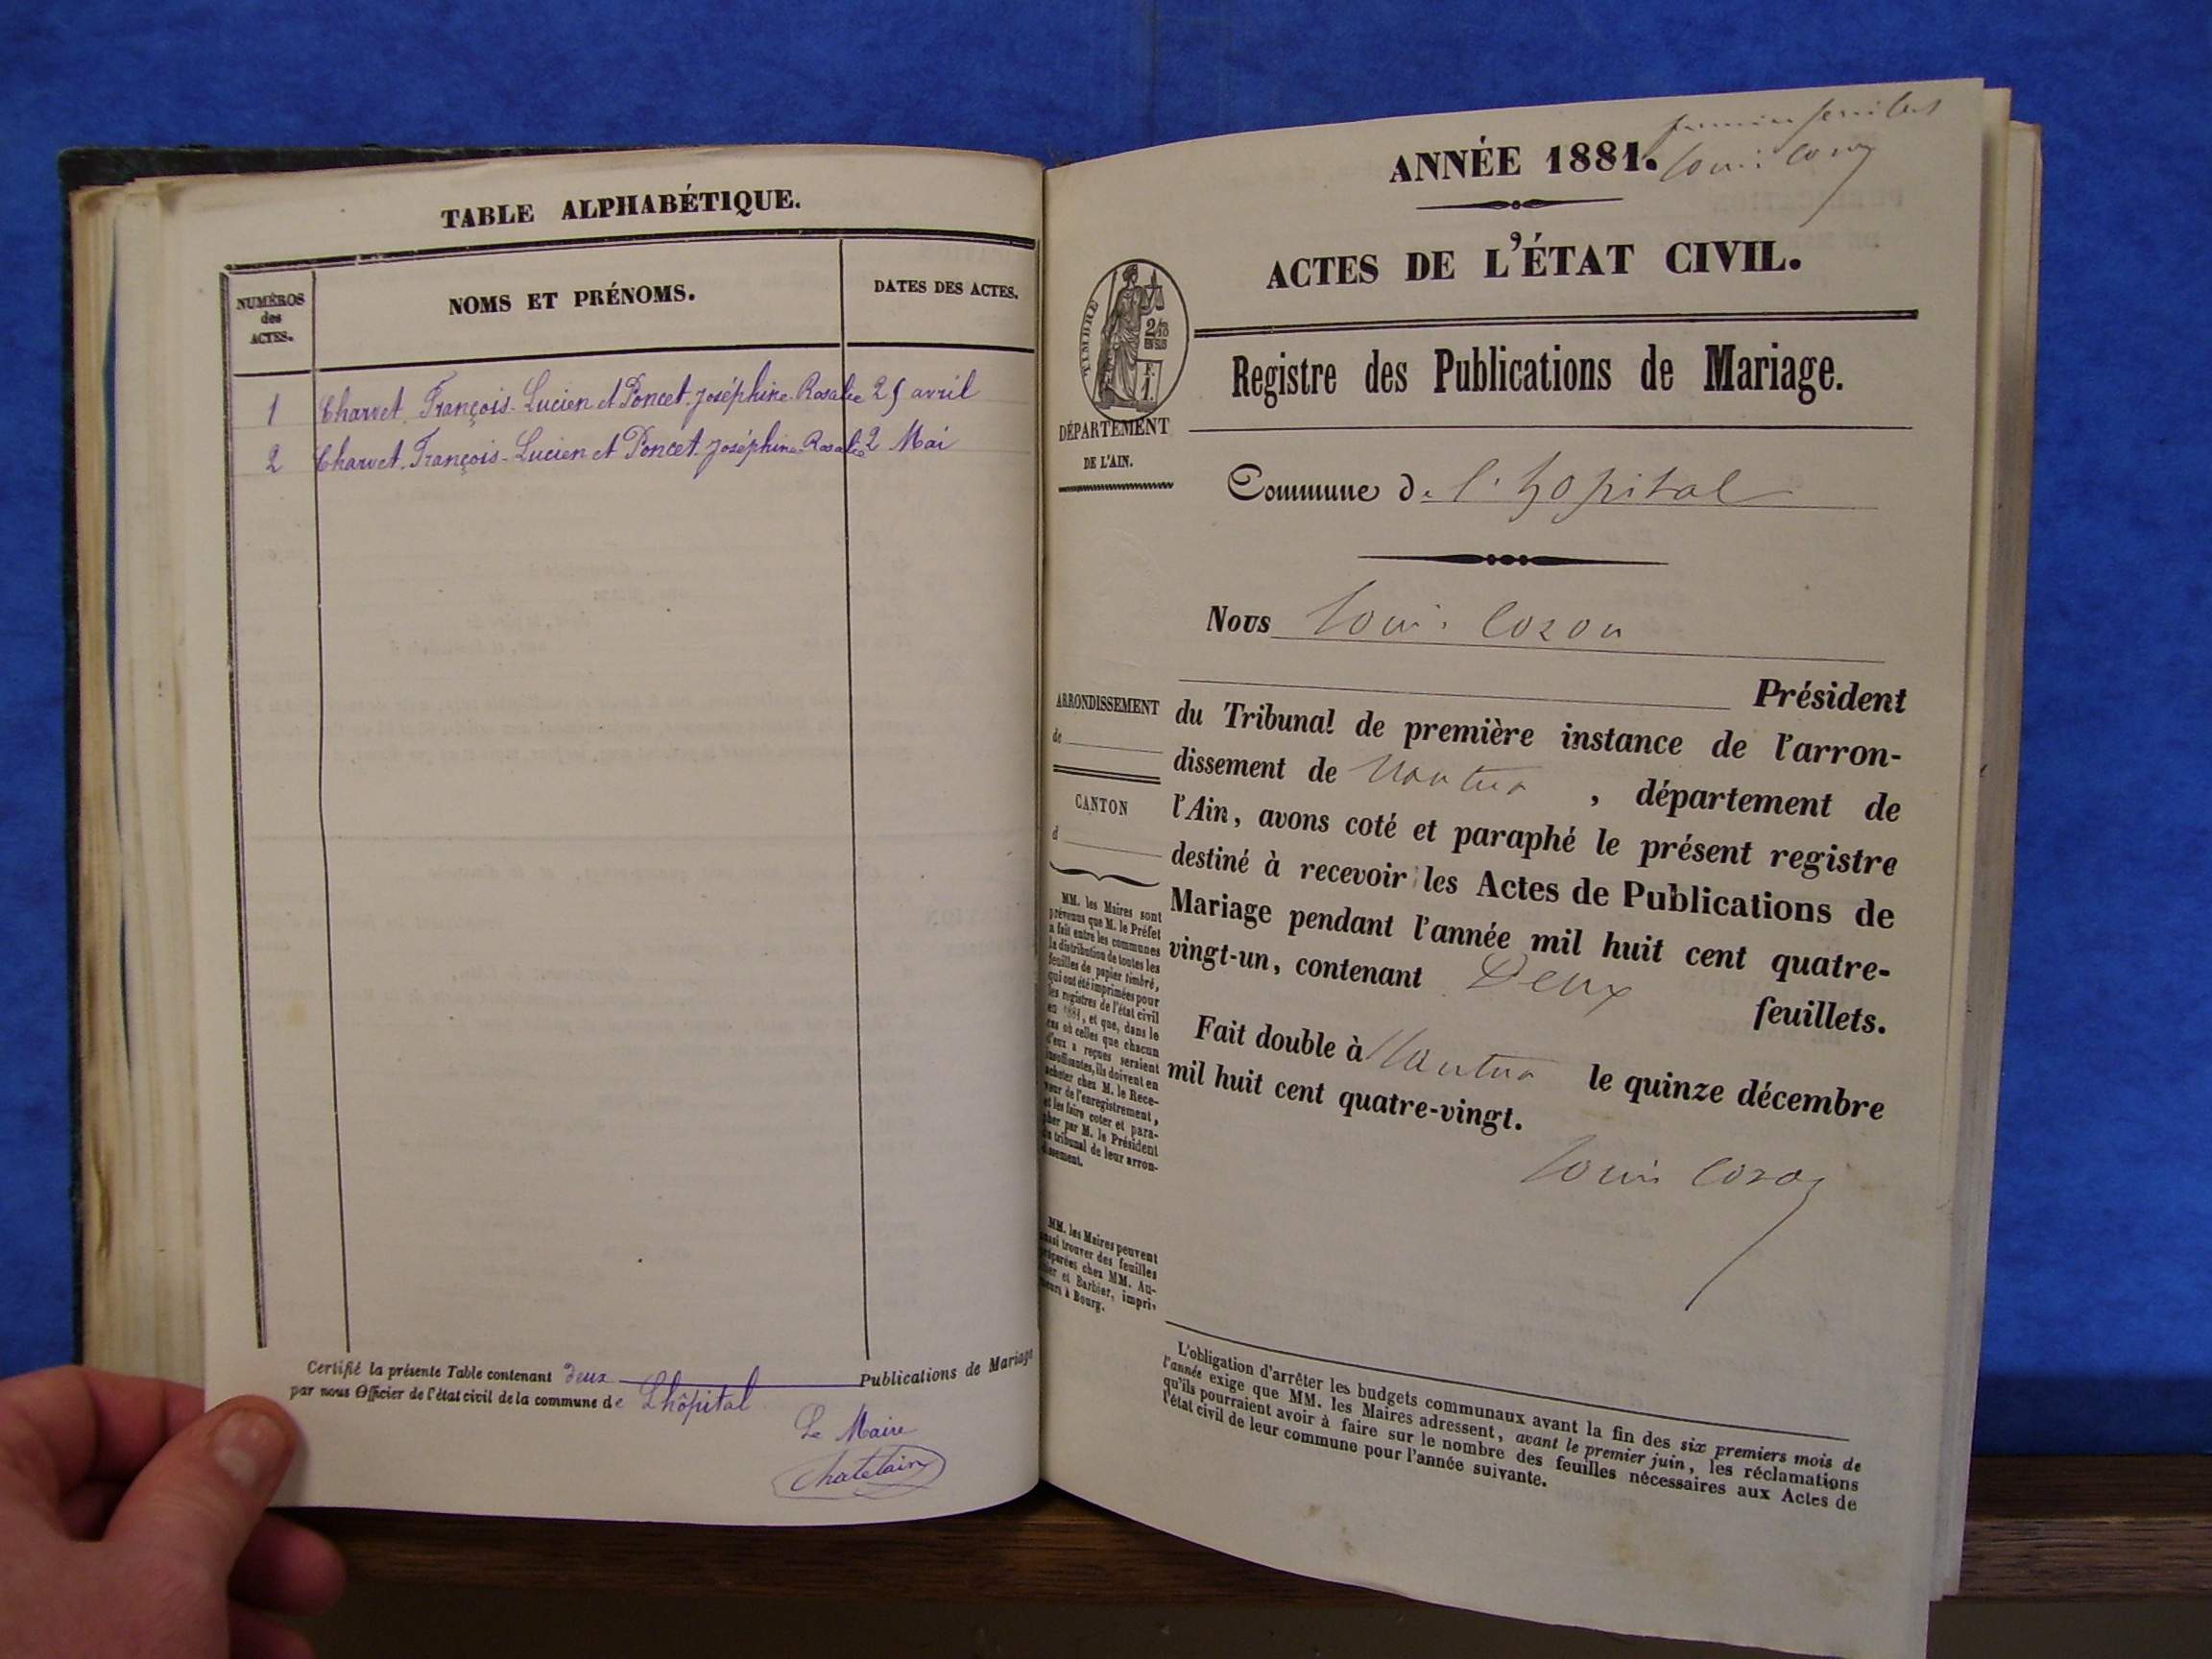 TABLE ALPHABÉTIQUE.
NUMÉROS
des
ACTES.
NOMS ET PRÉNOMS.
DATES DES ACTES.
1 Charvet François-Lucien et Poncet Joséphine-Rosalie 25 avril
2 Charvet François-Lucien et Poncet Joséphine-Rosalie 2 Mai
Certifié la présente Table contenant deux Publications de Mariage
par nous Officier de l'état civil de la commune de Lhôpital
Le Maire
Chatelain
premier feuillet
Louis Cozon
ANNÉE 1881.
ACTES DE L'ÉTAT CIVIL.
TIMBRE
2/10
EN SUS
Registre des Publications de Mariage.
DÉPARTEMENT
DE L'AIN.
Commune de l'hopital
Nous Louis Cozon
Président
du Tribunal de première instance de l'arron-
dissement de Nantua, département de
l'Ain, avons coté et paraphé le présent registre
destiné à recevoir les Actes de Publications de
Mariage pendant l'année mil huit cent quatre-
vingt-un, contenant Deux feuillets.
Fait double à Nantua le quinze décembre
mil huit cent quatre-vingt.
Louis Cozon
ARRONDISSEMENT
de
CANTON
d
MM. les Maires sont
prévenus que M. le Préfet
a fait entre les communes
la distribution de toutes les
feuilles de papier timbré,
qui ont été imprimées pour
les registres de l'état civil
en 1881, et que, dans le
cas où celles que chacun
d'eux a reçues seraient
insuffisantes, ils doivent en
acheter chez M. le Rece-
veur de l'enregistrement,
et les faire coter et para-
pher par M. le Président
du tribunal de leur arron-
dissement.
MM. les Maires peuvent
aussi trouver des feuilles
préparées chez MM. Au-
thier et Barbier, impri-
meurs à Bourg.
L'obligation d'arrêter les budgets communaux avant la fin des six premiers mois de
l'année exige que MM. les Maires adressent, avant le premier juin, les réclamations
qu'ils pourraient avoir à faire sur le nombre des feuilles nécessaires aux Actes de
l'état civil de leur commune pour l'année suivante.